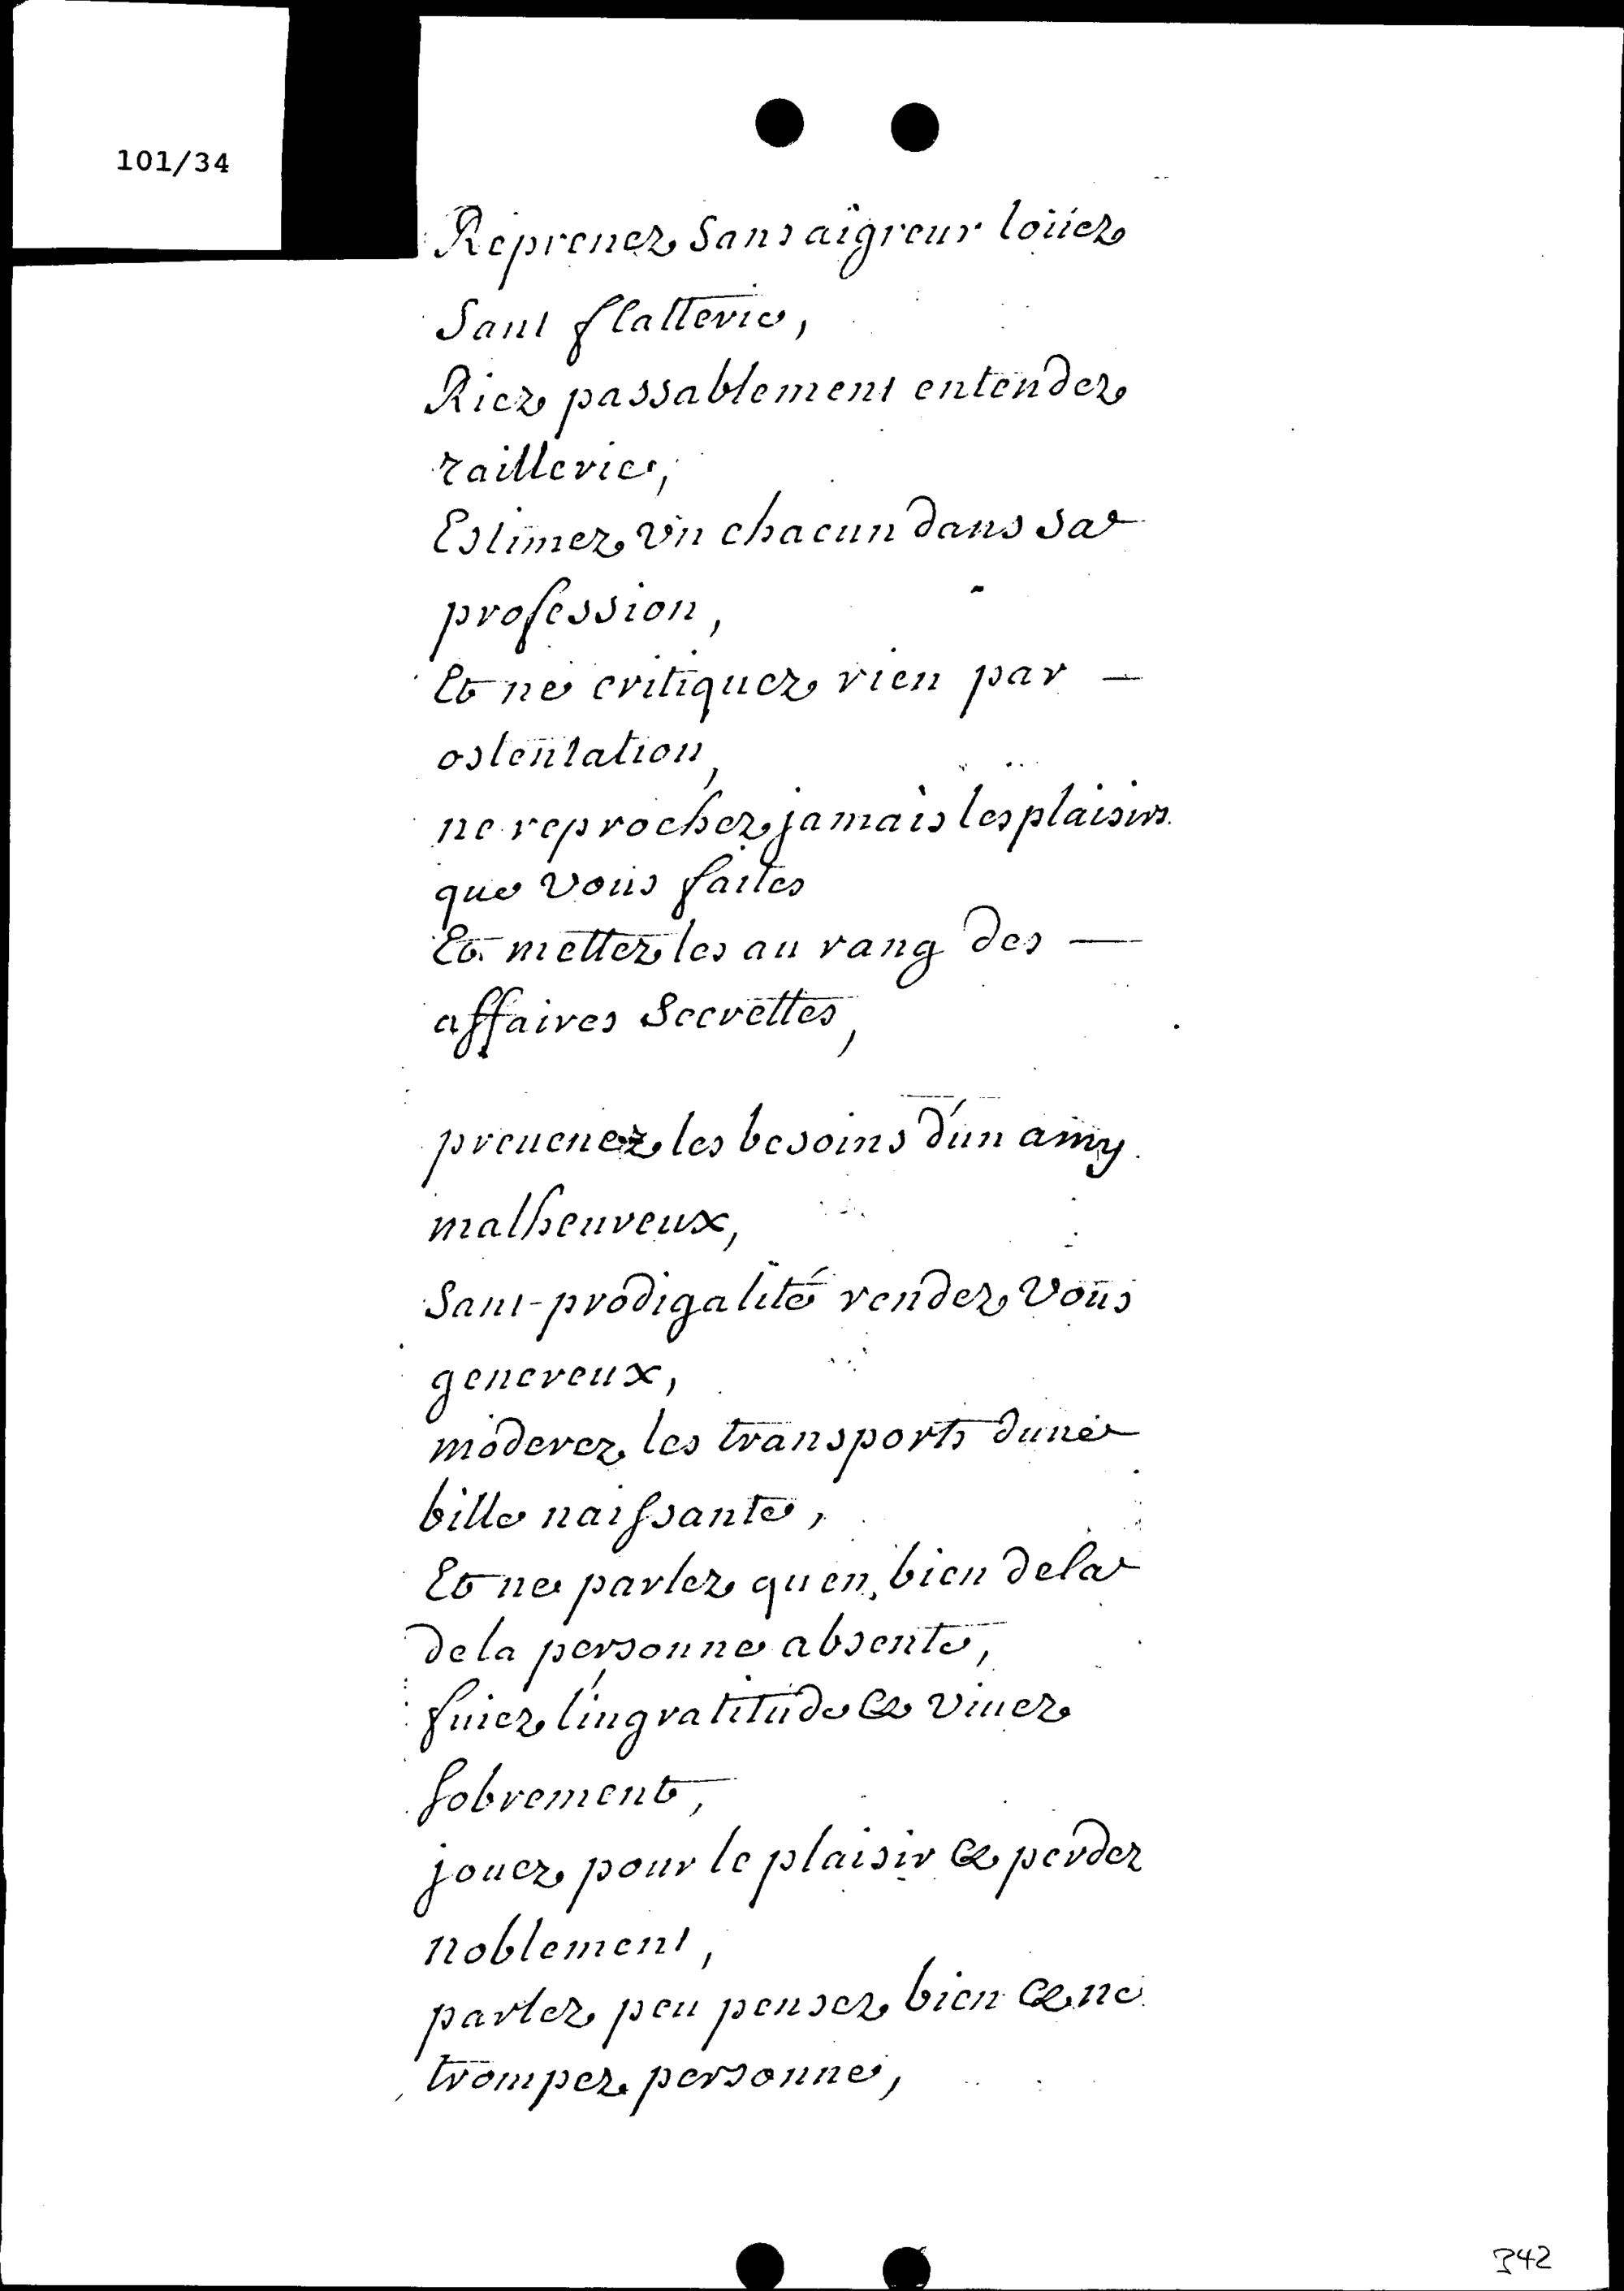 101/34
Reprenez Sans aigreur loüez
Sans flatterie,
Riez passablement entendez
raillerie,
Estimez vn chacun dans sa
profession,
Et ne critiquez rien par —
ostentation,
ne reprochez jamais les plaisirs
que vous faites
Et mettez les au rang des —
affaires Secrettes,
preuenez les besoins d'un amy
malheureux,
Sans-prodigalité rendez vous
genereux,
moderez les transports dune
bille naissante,
Et ne parlez quen bien dela
de la personne absente,
fuiez l'ingratitude & viuez
sobrement,
jouez pour le plaisir & perdez
noblement,
parlez peu pensez bien & ne
trompez personne,
342